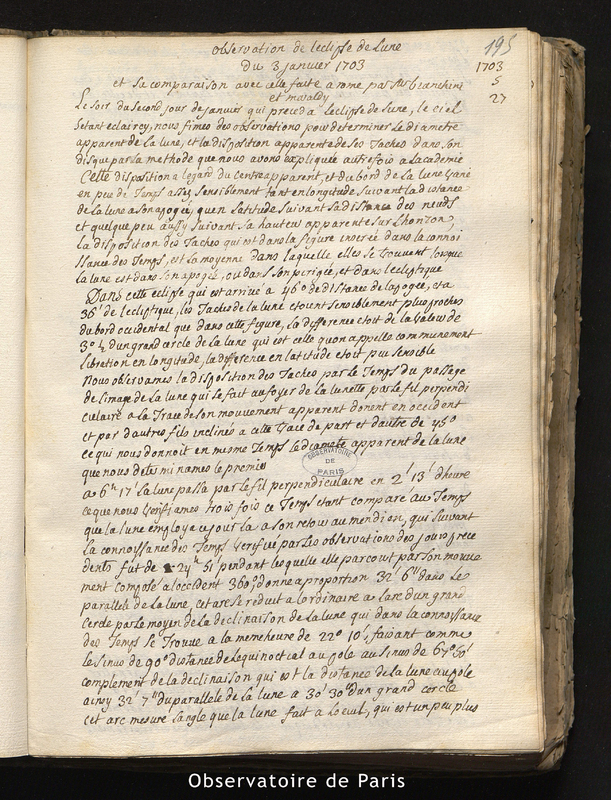 195
observation de leclipse de Lune
du 3 janvier 1703
1703
5
27
et sa comparaison avec celle faite a rome par Mrs bianchini
et maraldy
Le soir du second jour de janvier qui preceda Leclipse de Lune, le ciel
setant eclaircy, nous fimes des observations pour determiner Le diametre
apparent de la Lune, et la disposition apparente de ses Taches dans son
disque par la methode que nous avons expliquée autrefois a Lacademie
Cette disposition a legard du centre apparent, et du bord de la Lune varie
en peu de Temps assez sensiblement tant en longitude suivant la distance
de la Lune a son apogée, qu'en Latitude suivant la distance des neuds
et quelque peu aussy suivant sa hauteur apparente sur Lhorizon,
la disposition des Taches qui est dans la figure inserée dans la connoi
ssance des Temps, est la moyenne dans laquelle elles se trouvent lorsque
la lune est dans son apogée, ou dans son perigée, et dans lecliptique
Dans cette eclipse qui est arrivée a 46° de distance de lapogée, et a
36' de lecliptique, les Taches de la lune etoient sensiblement plus proches
du bord occidental que dans cette figure, La difference etoit de la valeur de
3° ½ dun grand cercle de la Lune qui est celle quon appelle communement
Libration en longitude, la difference en latitude etoit peu sensible
Nous observames la disposition des Taches par le Temps du passage
de limage de la Lune qui se fait au foyer de la lunette par le fil perpendi
culaire a la Trace de son mouvement apparent dorient en occident
et par dautres fils inclinés a cette Trace de part et dautre de 45°
ce qui nous donnoit en mesme Temps le diametre apparent de la lune
que nous determinames le premier
OBSERVATOIRE
DE
PARIS
a 6h 17' La lune passa par le fil perpendiculaire en 2' 13" dheure
ce que nous verifiames trois fois ce Temps etant comparé au Temps
que la lune employa ce jour la a son retour au meridien, qui suivant
La connoissance des Temps verifié par Les observations des jours prece
dents fut de 24h 51' pendant lesquelle elle parcourt par son mouve
ment composé a loccident 360°, donne a proportion 32' 6" dans Le
parallele de la Lune, cet arc se reduit a lordinaire a larc dun grand
Cercle par le moyen de la declinaison de La lune qui dans la connoissance
des Temps se Trouve a la meme heure de 22° 10', faisant comme
le sinus de 90° distance de lequinoctial au pole au sinus de 67° 50'
complement de la declinaison qui est la distance de la lune au pole
ainsy 32' 7" du parallele de La lune a 30' 30" dun grand cercle
cet arc mesure langle que la lune fait a Loeuil, qui est un peu plus
Observatoire de Paris